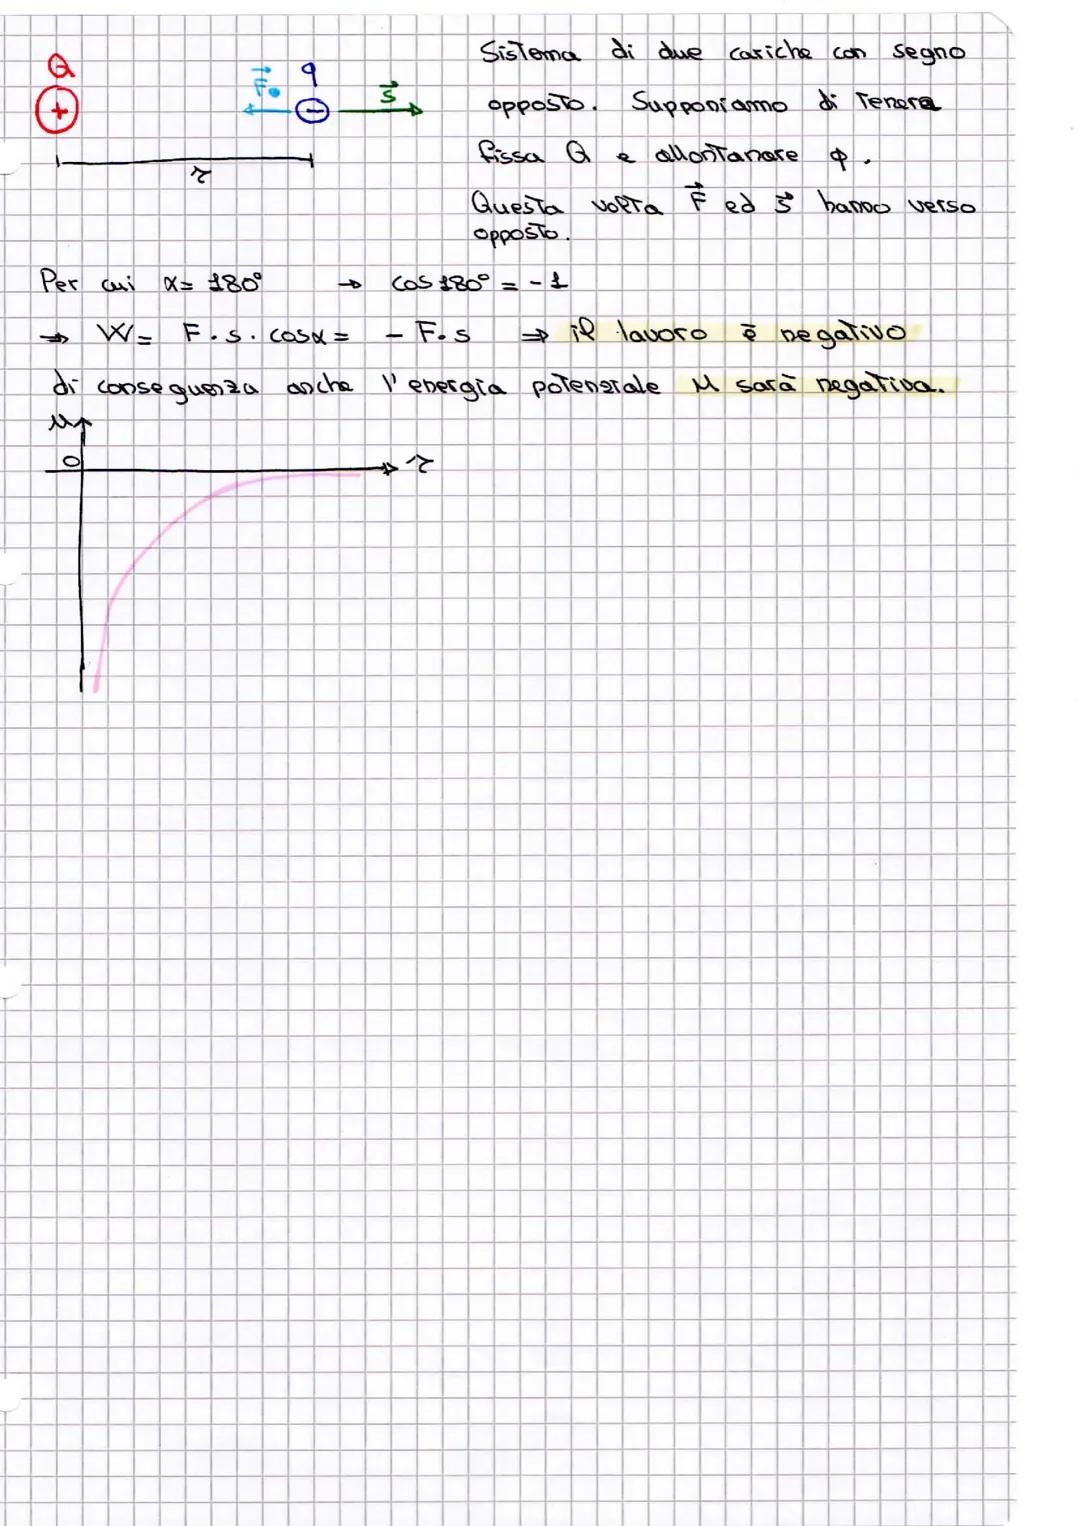 Q
+
F
q
-
s
r
Sistema di due cariche con segno
opposto. Supponiamo di tenere
fissa Q e allontanare q.
Questa volta F ed s hanno verso
opposto.
Per cui α = 180° → cos 180° = -1
→ W = F · s · cos α = - F · s ⇒ il lavoro è negativo
di conseguenza anche l'energia potenziale U sarà negativa.
U
0
r